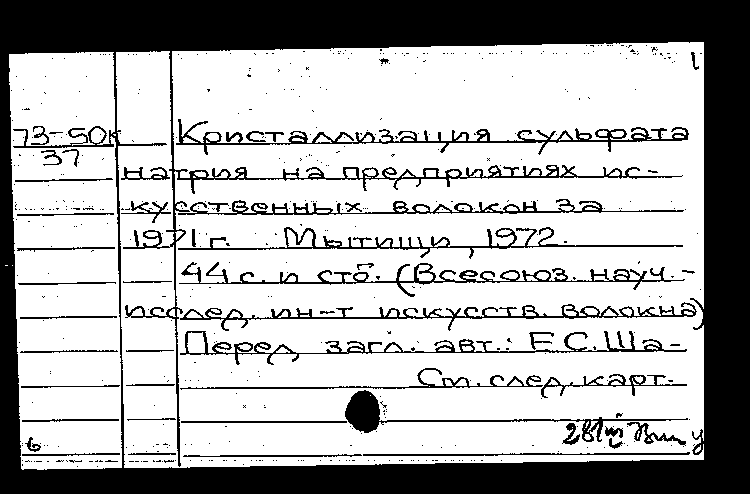 1
73-50к
37
Кристаллизация сульфата
натрия на предприятиях ис-
кусственных волокон за
1971 г. Мытищи, 1972.
44 с. и стб. (Всесоюз. науч.-
исслед. ин-т искусств. волокна)
Перед загл. авт.: Е.С.Ша-
См. след. карт.
6